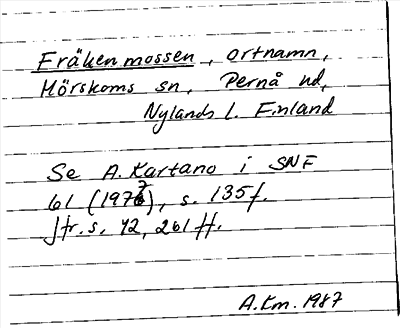 Fräkenmossen, ortnamn,
Mörskoms sn, Pernå hd,
Nylands l. Finland
Se A. Kartano i SNF
61 (1973), s. 135f.
Jfr. s. 42, 261 ff.
A.Km. 1987